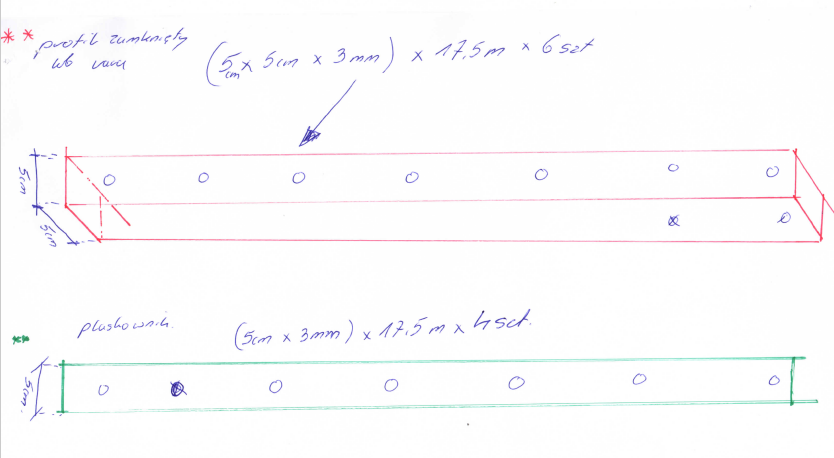 ** profil zamknięty
lub
(5cm x 5cm x 3mm) x 17,5m x 6 szt
5cm
5cm
płaskownik. (5cm x 3mm) x 17,5m x 4 szt.
5cm.